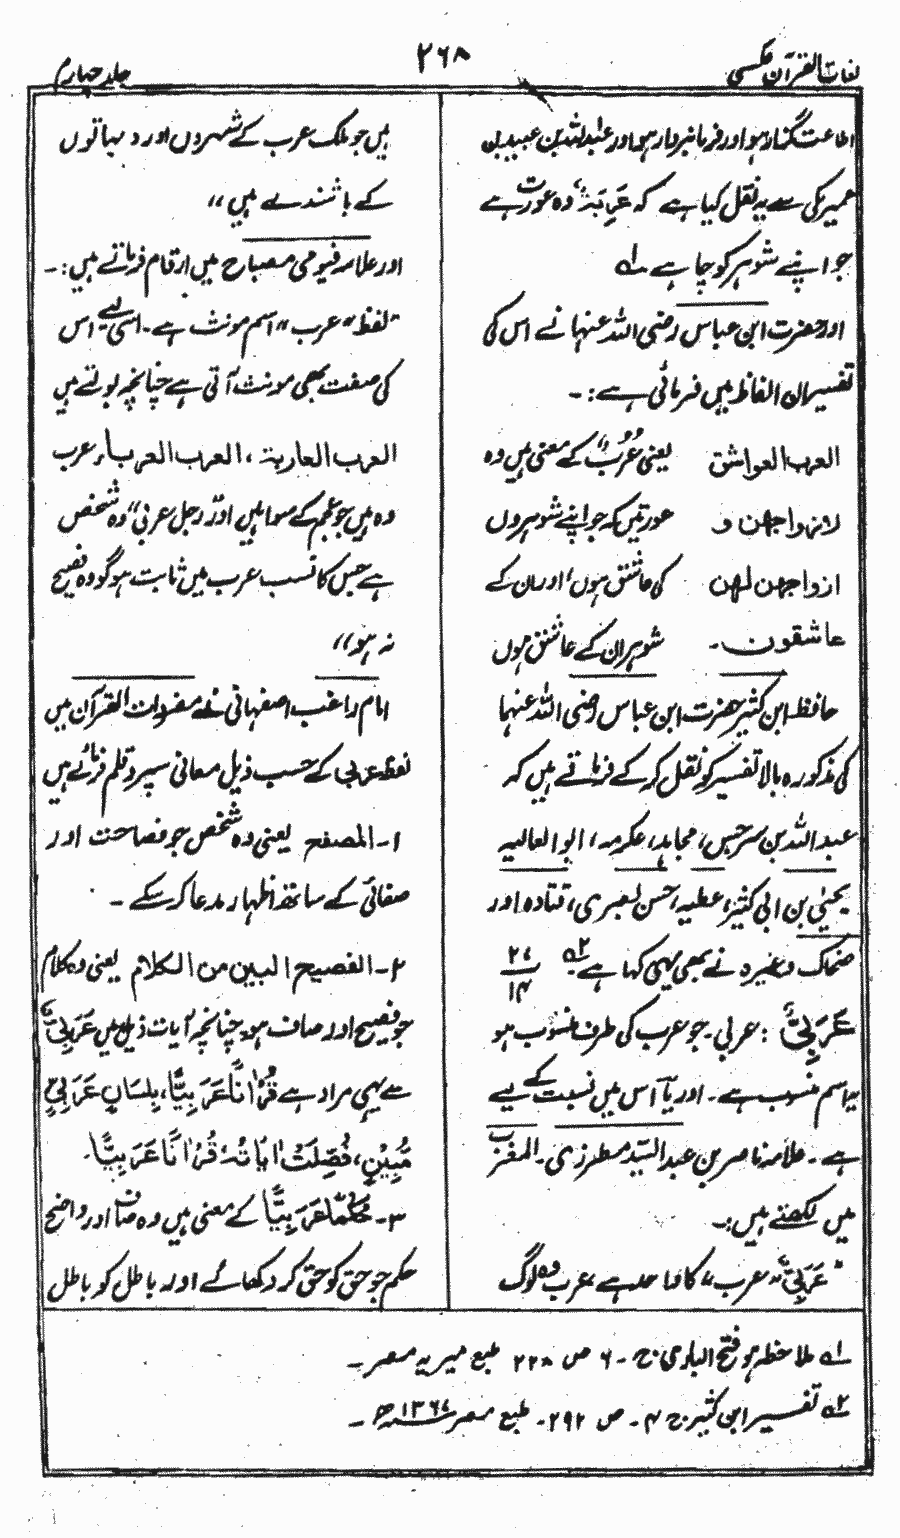 لغات القرآن عکسی
۲۶۸
جلد چہارم
اطاعت گذار ہو اور فرمانبردار ہو اور عبداللہ بن عبید بن
عمیر مکی سے یہ نقل کیا ہے کہ عَرِبَۃٌ وہ عورت ہے
جو اپنے شوہر کو چاہے ہے۔ لہ
اور حضرت ابن عباس رضی اللہ عنہا نے اس کی
تفسیر ان الفاظ میں فرمائی ہے:۔
العرب العواشق یعنی عُرُبٌ کے معنی ہیں وہ
لازواجھن و عورتیں کہ جو اپنے شوہروں
ازواجھن لھن کی عاشق ہوں اور ان کے
عاشقون۔ شوہر ان کے عاشق ہوں
حافظ ابن کثیر حضرت ابن عباس رضی اللہ عنہا
کی مذکورہ بالا تفسیر کو نقل کر کے فرماتے ہیں کہ
عبداللہ بن سرجس، مجاہد، عکرمہ، ابو العالیہ
یحییٰ بن ابی کثیر، عطیہ، حسن بصری، قتادہ اور
ضحاک وغیرہ نے بھی یہی کہا ہے ۲ہ ۲۷/۱۴
عَرَبِیٌّ : عربی۔ جو عرب کی طرف منسوب ہو
یہ اسم منسوب ہے۔ اور یآ اس میں نسبت کے لیے
ہے۔ علامہ ناصر بن عبدالسید مطرزی۔ المغرب
میں لکھتے ہیں:۔
"عَرَبِیٌّ" عرب" کا واحد ہے عرب وہ لوگ
ہیں جو ملک عرب کے شہروں اور دیہاتوں
کے باشندے ہیں"
اور علامہ فیومی مصباح میں ارقام فرماتے ہیں:۔
"لفظ "عرب" اسم مونث ہے۔ اسی لیے اس
کی صفت بھی مونث آتی ہے چنانچہ بولتے ہیں
العرب العاربۃ، العرب العرباء عرب
وہ ہیں جو عجم کے سوا ہیں اور رجل عربی" وہ شخص
ہے جس کا نسب عرب میں ثابت ہو گو وہ فصیح
نہ ہو"
امام راغب اصفہانی نے مفردات القرآن میں
لفظ عربی کے حسب ذیل معانی سپرد قلم فرمائے ہیں
۱۔ المصفح یعنی وہ شخص جو فصاحت اور
صفائی کے ساتھ اظہار مدعا کر سکے۔
۲۔ الفصیح البین من الکلام یعنی وہ کلام
جو فصیح اور صاف ہو۔ چنانچہ آیات ذیل میں عَرَبِیٌّ
سے یہی مراد ہے قُرْاٰنًا عَرَبِیًّا، بِلِسَانٍ عَرَبِیٍّ
مُّبِیْنٍ، فُصِّلَتْ اٰیَاتُہٗ قُرْاٰنًا عَرَبِیًّا۔
۳۔ حُکْمًا عَرَبِیًّا کے معنی ہیں وہ صاف اور واضح
حکم جو حق کو حق کر دکھائے اور باطل کو باطل
۱ہ ملاحظہ ہو فتح الباری ج۔ ۶ ص ۲۲۸ طبع میریہ مصر۔
۲ہ تفسیر ابن کثیر ج ۴۔ ص ۲۹۲۔ طبع مصر ۱۳۶۷ھ۔